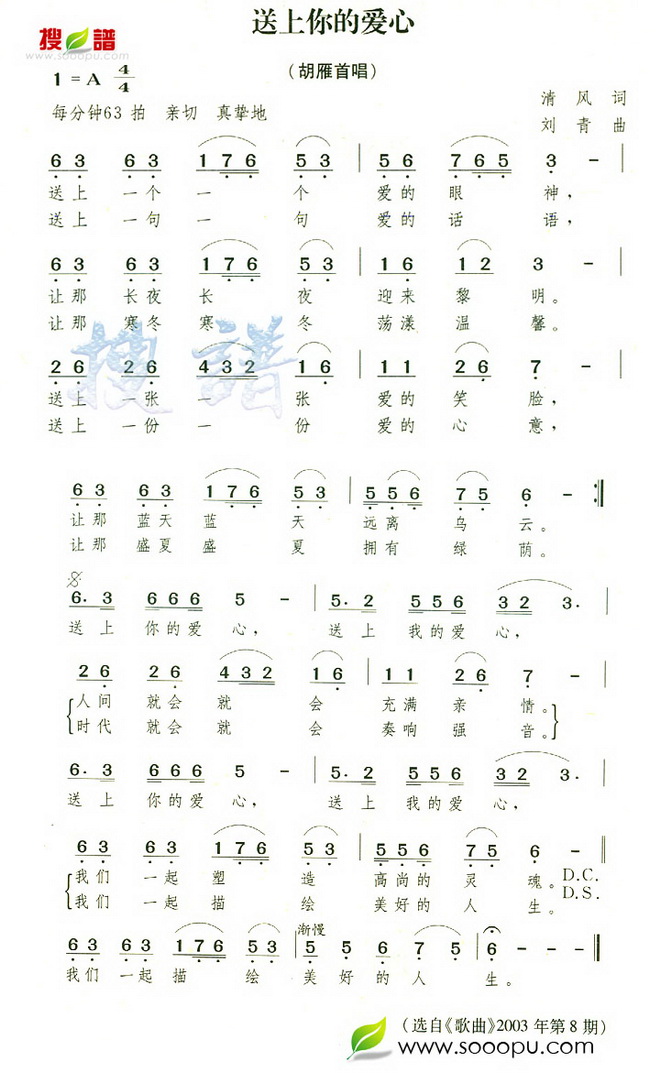 送上你的爱心
搜谱
www.sooopu.com
(胡雁首唱)
1=A 4/4
清风词
每分钟63拍 亲切 真挚地
刘青曲
63 63 176 53 | 56 765 3 - |
送上 一个 一 个 爱的 眼 神,
送上 一句 一 句 爱的 话 语,
63 63 176 53 | 16 12 3 - |
让那 长夜 长 夜 迎来 黎 明。
让那 寒冬 寒 冬 荡漾 温 馨。
搜谱
26 26 432 16 | 11 26 7 - |
送上 一张 一 张 爱的 笑 脸,
送上 一份 一 份 爱的 心 意,
63 63 176 53 | 556 75 6 - :|
让那 蓝天 蓝 天 远离 乌 云。
让那 盛夏 盛 夏 拥有 绿 荫。
6. 3 666 5 - | 5. 2 556 32 3. |
送上 你的爱 心, 送上 我的爱 心,
26 26 432 16 | 11 26 7 - |
人间 就会 就 会 充满 亲 情。
时代 就会 就 会 奏响 强 音。
6. 3 666 5 - | 5. 2 556 32 3. |
送上 你的爱 心, 送上 我的爱 心,
63 63 176 53 | 556 75 6 - ‖
我们 一起 塑 造 高尚的 灵 魂。 D.C.
我们 一起 描 绘 美好的 人 生。 D.S.
渐慢
63 63 176 53 | 5 5 6 75 | 6 - - - ‖
我们 一起 描 绘 美 好 的 人 生。
(选自《歌曲》2003年第8期)
www.sooopu.com